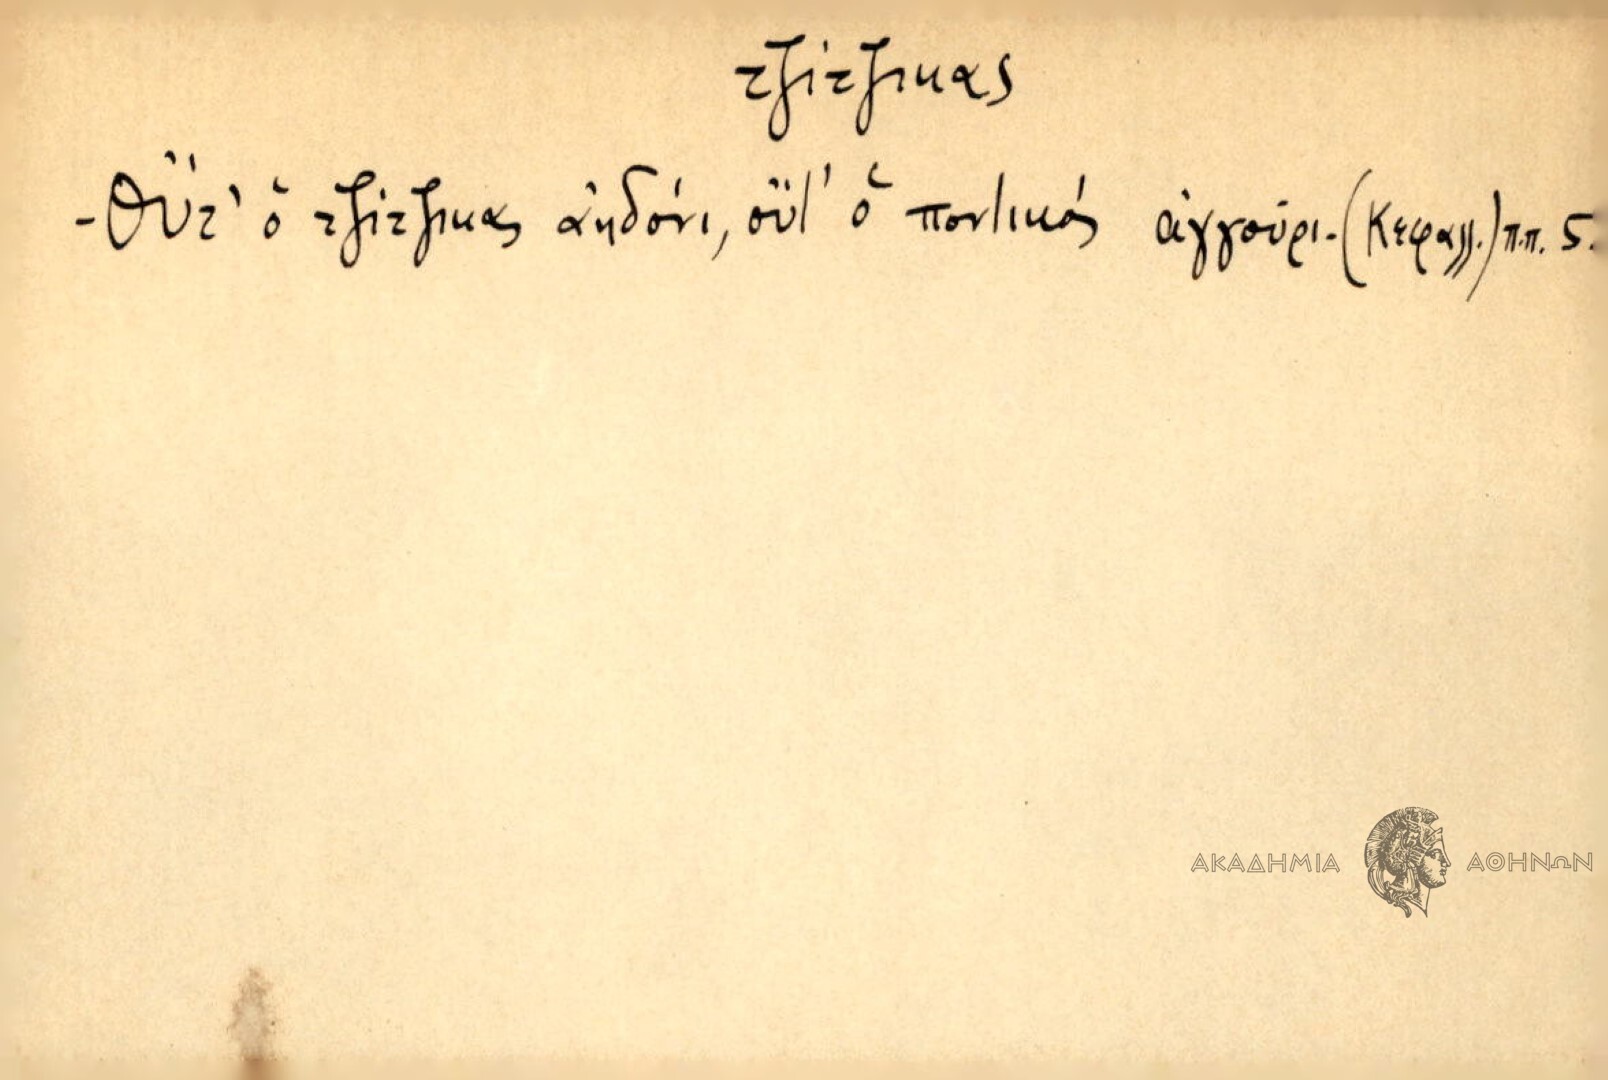 τζίτζικας
-Οὔτ' ὁ τζίτζικας ἀηδόνι, οὔτ' ὁ ποντικός ἀγγούρι.(Κεφαλλ.) π.π. 5.
ΑΚΑΔΗΜΙΑ ΑΘΗΝΩΝ